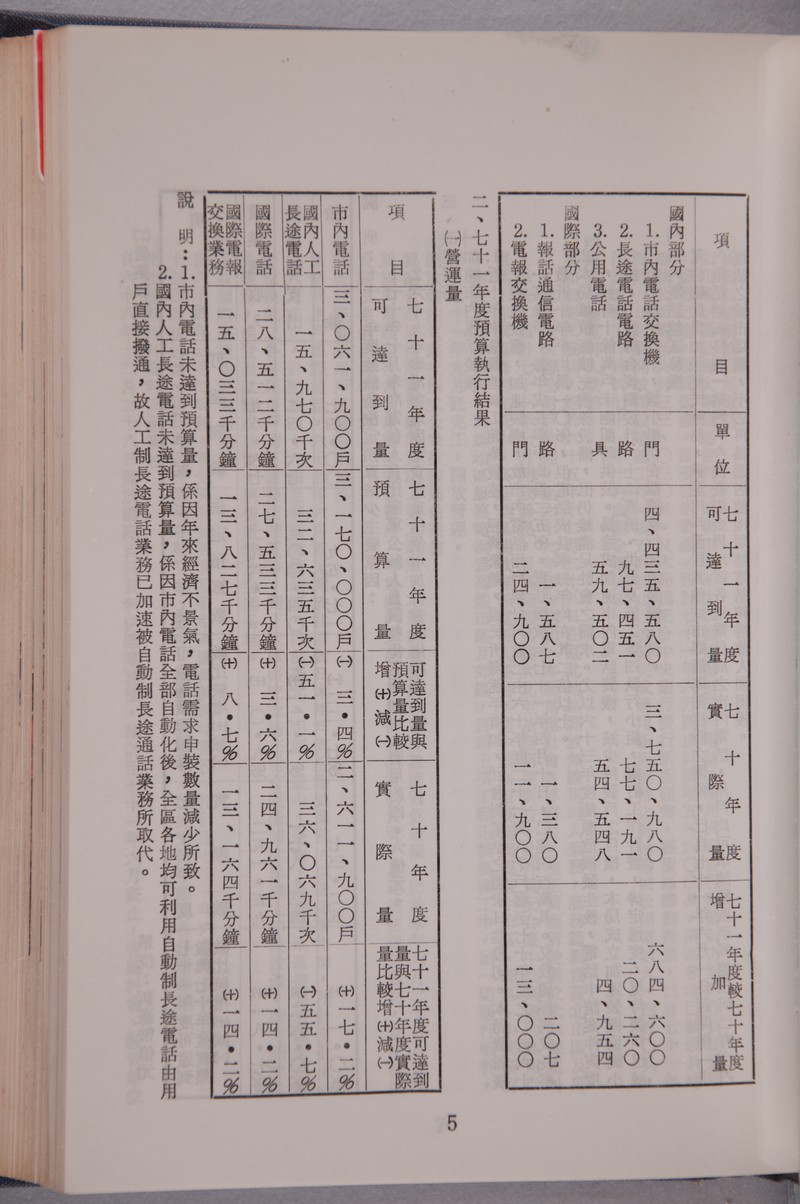 項目
單位
七十一年度可達到量
七十年度實際量
七十一年度較七十年度增加量
國內部分
1.市內電話交換機 門 四、四三五、五八〇 三、七五〇、九八〇 六八四、六〇〇
2.長途電話電路 路 九七、四五一 七七、一九一 二〇、二六〇
3.公用電話 具 五九、五〇二 五四、五四八 四、九五四
國際部分
1.報話通信電路 路 一、五八七 一、三八〇 二〇七
2.電報交換機 門 二四、九〇〇 一一、九〇〇 一三、〇〇〇
二、七十一年度預算執行結果
㈠營運量
項目
七十一年度可達到量
七十一年度預算量
可達到量與預算量比較增㈩減㈠
七十年度實際量
七十一年度可達到量與七十年度實際量比較增㈩減㈠
市內電話 三、〇六一、九〇〇戶 三、一七〇、〇〇〇戶 ㈠三•四% 二、六一一、九〇〇戶 ㈩一七•二%
國內人工長途電話 一五、九七〇千次 三二、六三五千次 ㈠五一•一% 三六、〇六九千次 ㈠五五•七%
國際電話 二八、五一二千分鐘 二七、五三三千分鐘 ㈩三•六% 二四、九六一千分鐘 ㈩一四•二%
國際電報交換業務 一五、〇三三千分鐘 一三、八二七千分鐘 ㈩八•七% 一三、一六四千分鐘 ㈩一四•二%
說明：1.市內電話未達到預算量，係因年來經濟不景氣，電話需求申裝數量減少所致。
2.國內人工長途電話未達到預算量，係因市內電話全部自動化後，全區各地均可利用自動制長途電話由用
戶直接撥通，故人工制長途電話業務已加速被自動制長途通話業務所取代。
5